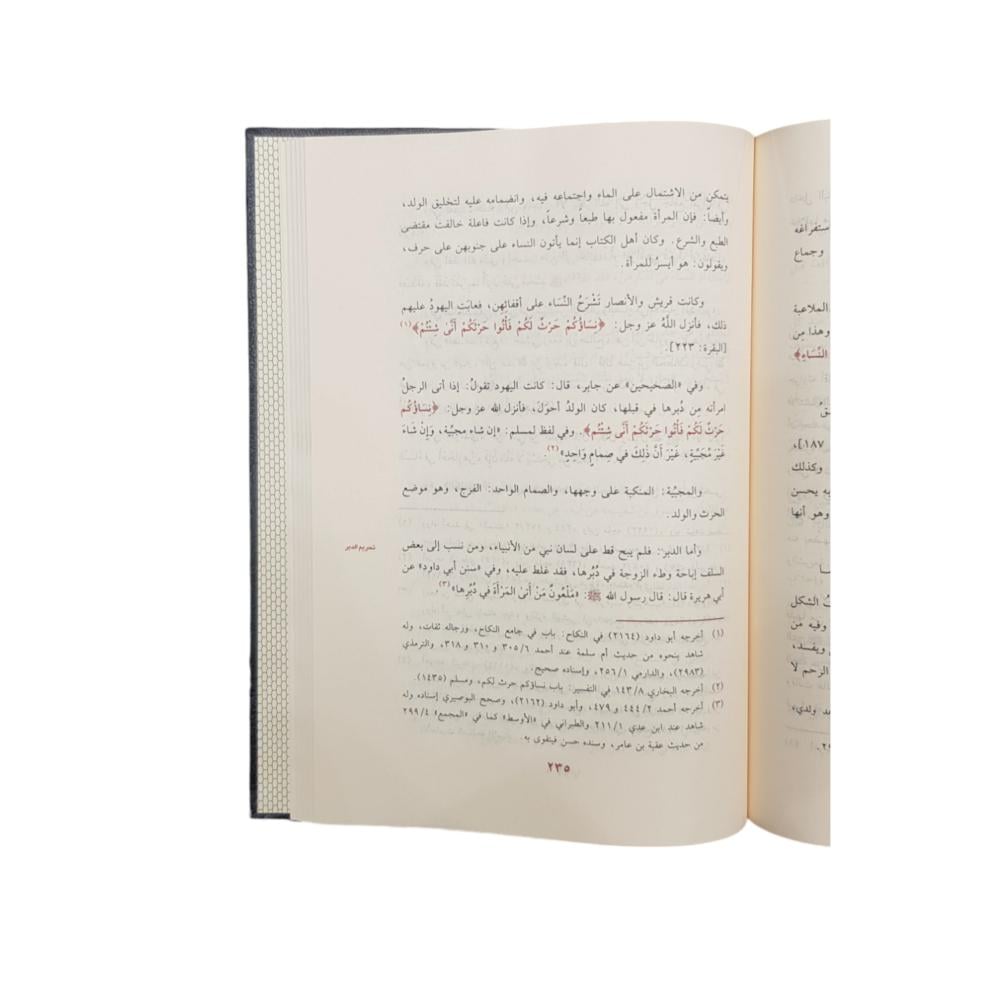 يتمكن من الاشتمال على الماء واجتماعه فيه، وانضمامه عليه لتخليق الولد،
وأيضاً: فإن المرأة مفعول بها طبعاً وشرعاً، وإذا كانت فاعلة خالفت مقتضى
الطبع والشرع. وكان أهل الكتاب إنما يأتون النساء على جنوبهن على حرف،
ويقولون: هو أيسرُ للمرأة.
وكانت قريش والأنصار تَشْرَحُ النِّسَاء على أقفائِهن، فعابَتِ اليهودُ عليهم
ذلك، فأنزل اللَّهُ عز وجل: ﴿نِسَاؤُكُمْ حَرْثٌ لَكُمْ فَأْتُوا حَرْثَكُمْ أَنَّىٰ شِئْتُمْ﴾(١)
[البقرة: ٢٢٣].
وفي «الصحيحين» عن جابر، قال: كانت اليهود تقولُ: إذا أتى الرجلُ
امرأته مِن دُبرها في قبلها، كان الولدُ أحوَلَ، فأنزل الله عز وجل: ﴿نِسَاؤُكُم
حَرْثٌ لَكُمْ فَأْتُوا حَرْثَكُمْ أَنَّىٰ شِئْتُم﴾. وفي لفظ لمسلم: «إن شاء مجبِّية، وَإِنْ شَاءَ
غَيْرَ مُجَبِّيَةٍ، غَيْرَ أَنَّ ذَلِكَ في صِمامٍ وَاحِدٍ»(٢).
والمجبِّية: المنكبة على وجهها، والصمام الواحد: الفرج، وهو موضع
الحرث والولد.
تحريم الدبر
وأما الدبر: فلم يبح قط على لسان نبي من الأنبياء، ومن نسب إلى بعض
السلف إباحة وطء الزوجة في دُبُرها، فقد غلط عليه، وفي «سنن أبي داود» عن
أبي هريرة قال: قال رسول الله ﷺ: «مَلْعُونٌ مَنْ أَتىٰ المَرْأَةَ في دُبُرِها»(٣)
(١) أخرجه أبو داود (٢١٦٤) في النكاح: باب في جامع النكاح، ورجاله ثقات، وله
شاهد بنحوه من حديث أم سلمة عند أحمد ٣٠٥/٦ و ٣١٠ و ٣١٨، والترمذي
(٢٩٨٣)، والدارمي ٢٥٦/١، وإسناده صحيح.
(٢) أخرجه البخاري ١٤٣/٨ في التفسير: باب نساؤكم حرث لكم، ومسلم (١٤٣٥).
(٣) أخرجه أحمد ٤٤٤/٢ و ٤٧٩، وأبو داود (٢١٦٢)، وصحح البوصيري إسناده وله
شاهد عند ابن عدي ٢١١/١ والطبراني في «الأوسط» كما في «المجمع» ٢٩٩/٤
من حديث عقبة بن عامر، وسنده حسن فيتقوى به.
٢٣٥
ستفراغه
وجماع
الملاعبة
وهذا مِن
النِّسَاءِ﴾
١٨٧]،
وكذلك
يه يحسن
وهو أنها
الشكل
وفيه من
ويفسد،
الرحم لا
ولدي،